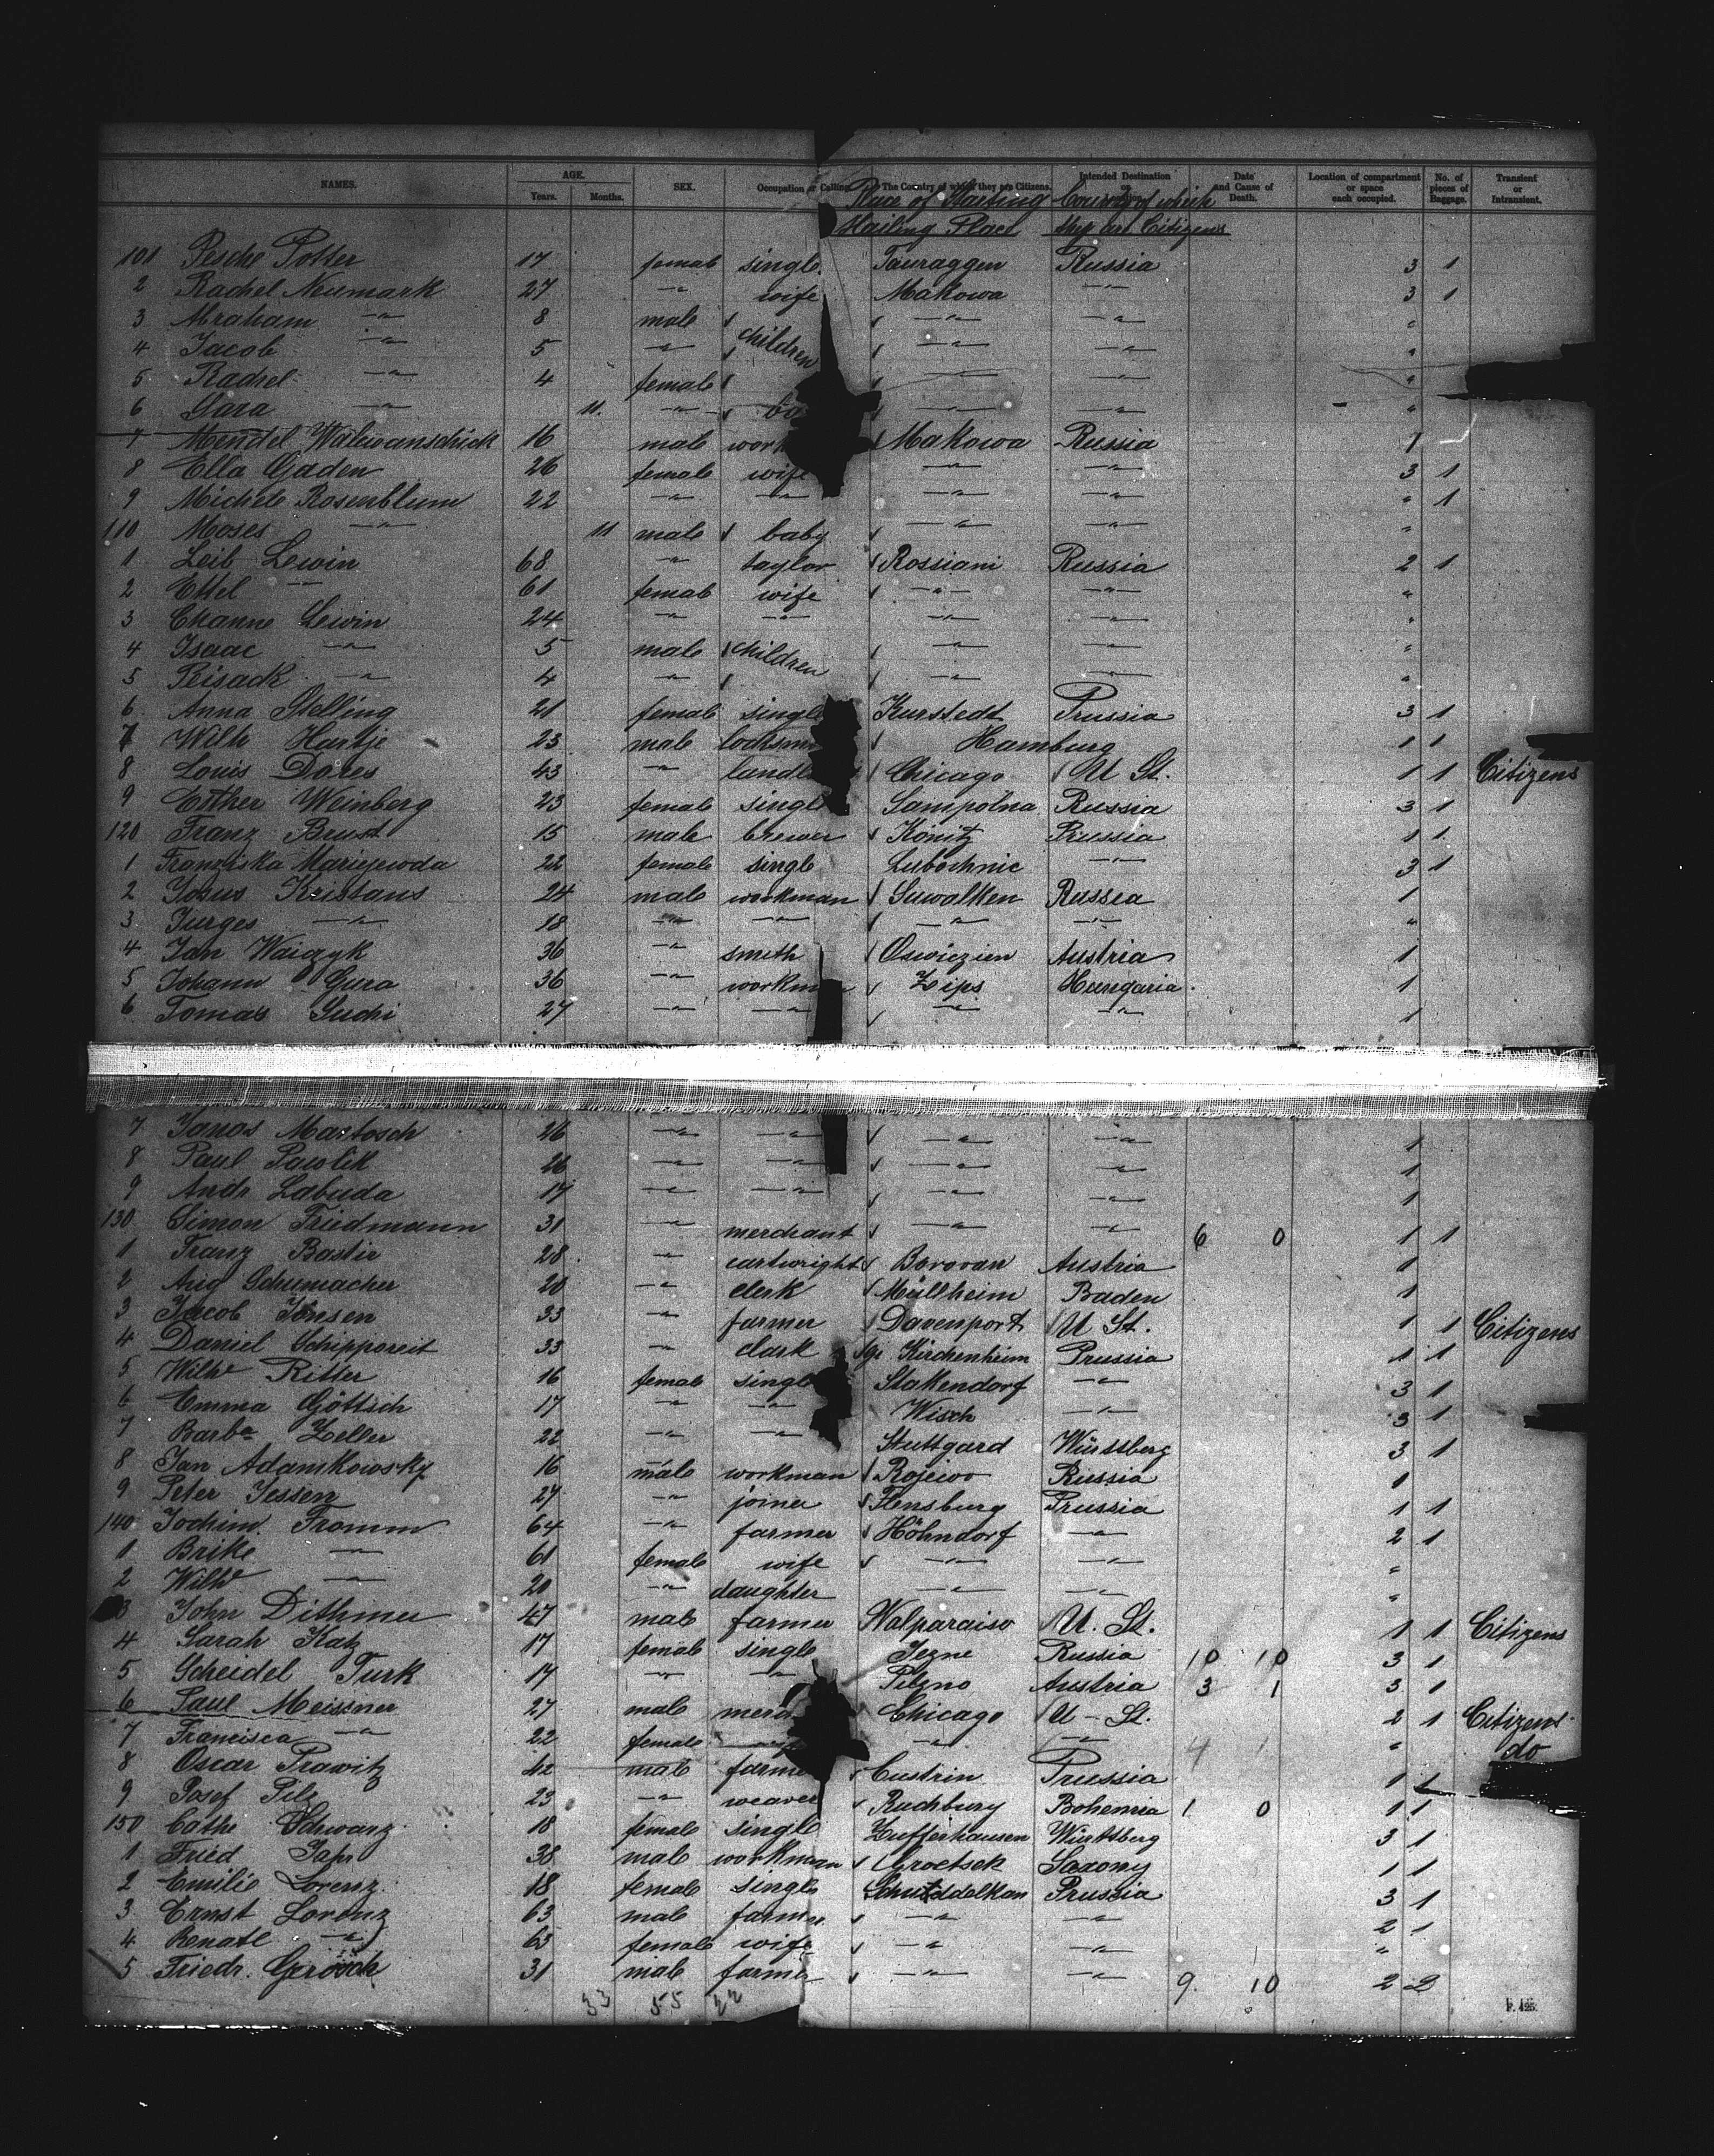 NAMES. AGE. Years. Months. SEX. Occupation or Calling. The Country of which they are Citizens. Intended Destination or Date and Cause of Death. Location of compartment or space each occupied. No. of pieces of Baggage. Transient or Intransient.
Place of Starting Country of which
Hailing Place they are Citizens
101 Pesche Potter 17 female single Tauraggen Russia 3 1
2 Rachel Neumark 27 —"— wife Makowa —"— 3 1
3 Abraham —"— 8 male —"— —"— "
4 Jacob —"— 5 —"— children —"— —"— "
5 Rachel —"— 4 female —"— —"— "
6 Sara —"— 11. —"— —"— —"— "
7 Mendel Walwanschick 16 male work Makowa Russia 1
8 Ella Gaden 26 female wife —"— —"— 3 1
9 Michele Rosenblum 22 —"— —"— —"— —"— " 1
110 Moses —"— 11 male baby —"— —"— "
1 Leib Lewin 68 —"— taylor Rossiani Russia 2 1
2 Ettel —"— 61 female wife —"— —"— "
3 Channe Lewin 24 —"— —"— —"— —"— "
4 Isaac —"— 5 male children —"— —"— "
5 Peisack —"— 4 —"— —"— —"— "
6 Anna Stelling 21 female single Kurstedt Prussia 3 1
7 Wilh Hartje 23 male locksm Hamburg 1 1
8 Louis Dores 43 —"— landl Chicago U St. 1 1 Citizens
9 Esther Weinberg 23 female single Sampolna Russia 3 1
120 Franz Brust 15 male brewer Könitz Prussia 1 1
1 Franziska Mariejewoda 22 female single Lubochnie —"— 3 1
2 Josus Kristans 24 male workman Suwalken Russia 1
3 Jurges —"— 18 —"— —"— —"— —"— "
4 Jan Waiczyk 36 —"— smith Oswiezien Austria 1
5 Johann Gura 36 —"— workman Zips Hungaria. 1
6 Tomas Suchi 27 —"— —"— —"— —"— 1
7 Janos Martosch 26 —"— —"— —"— —"— 1
8 Paul Pawlik 26 —"— —"— —"— —"— 1
9 Andr Labuda 17 —"— —"— —"— —"— 1
130 Simon Friedmann 31 —"— merchant —"— —"— 6 0 1 1
1 Franz Bastir 28 —"— cartwright Borovan Austria 1
2 Aug Schumacher 20 —"— clerk Müllheim Baden 1
3 Jacob Jensen 33 —"— farmer Davenport U St. 1 1 Citizens
4 Daniel Schipporeit 33 —"— clark Kirchenheim Prussia 1 1
5 Wilhe Ritter 16 female single Stakendorf —"— 3 1
6 Emma Göttsch 17 —"— —"— Wisch —"— 3 1
7 Barba Zeller 22 —"— —"— Stuttgard Württsberg 3 1
8 Jan Adamkowsky 16 male workman Rojewo Russia 1
9 Peter Jessen 27 —"— joiner Flensburg Prussia 1 1
140 Jochim Fromm 64 —"— farmer Höhndorf —"— 2 1
1 Brike —"— 61 female wife —"— —"— "
2 Wilhe —"— 20 —"— daughter —"— —"— "
3 John Dithmer 47 male farmer Valparaiso U. St. 1 1 Citizens
4 Sarah Katz 17 female single Jezne Russia 10 10 3 1
5 Scheidel Turk 17 —"— —"— Pilzno Austria 3 1 3 1
6 Paul Meissner 27 male merch Chicago U-St. 2 1 Citizens
7 Francisca —"— 22 female —"— —"— 4 1 " do
8 Oscar Prawitz 42 male farmer Custrin Prussia 1 1
9 Josef Pilz 23 —"— weaver Ruchbury Bohemia 1 0 1 1
150 Cathe Schwarz 18 female single Zufferhausen Wurttsberg 3 1
1 Fried Jahr 38 male workman Groetsck Saxony 1 1
2 Emilie Lorenz 18 female single Prussia 3 1
3 Ernst Lorenz 63 male farmer —"— —"— 2 1
4 Renate —"— 63 female wife —"— —"— "
5 Friedr. Grösck 31 male farmer —"— —"— 9. 10 2 2
33 55 22